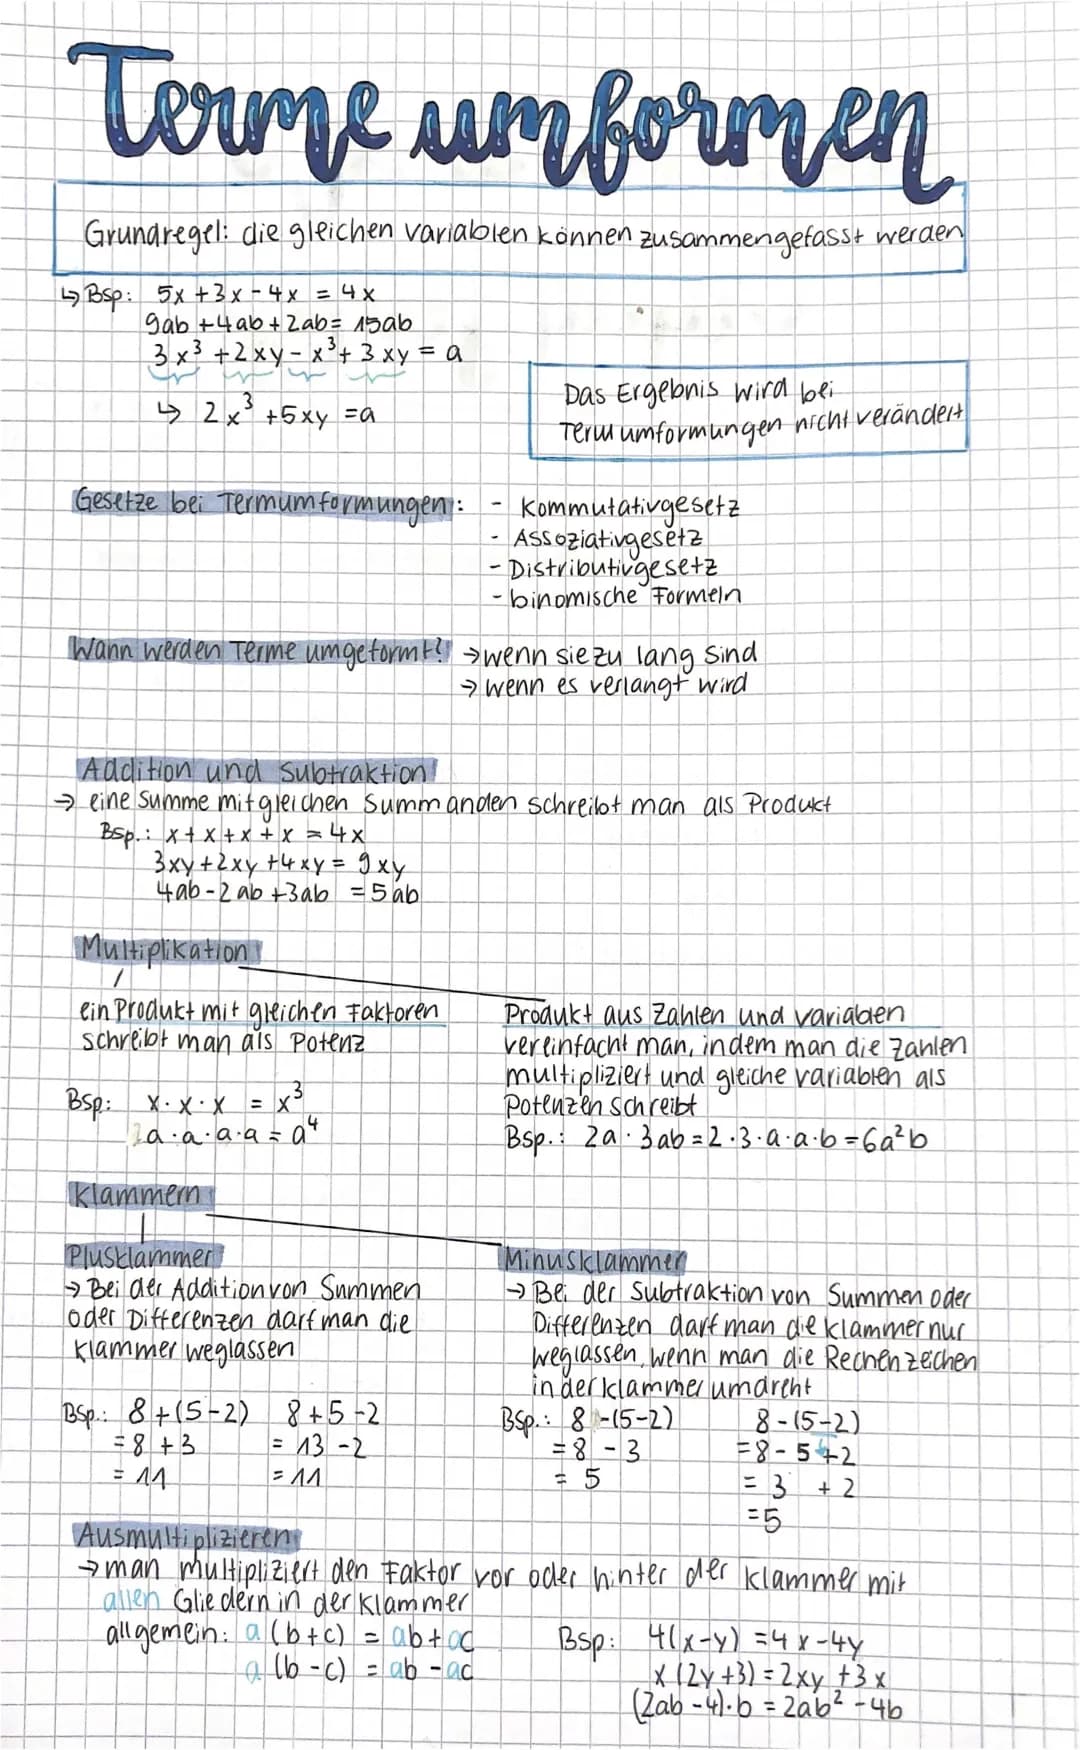 Terme umformen
Grundregel: die gleichen Variablen können zusammengefasst werden
↳ Bsp: 5x + 3x - 4x = 4x
9ab + 4ab + 2ab = 15ab
3x³ + 2xy - x³ + 3xy = a
↳ 2x³ + 5xy = a
Das Ergebnis wird bei
Termumformungen nicht verändert
Gesetze bei Termumformungen: - Kommutativgesetz
- Assoziativgesetz
- Distributivgesetz
- binomische Formeln
Wann werden Terme umgeformt? → wenn sie zu lang sind
→ wenn es verlangt wird
Addition und Subtraktion
→ eine Summe mit gleichen Summanden schreibt man als Produkt
Bsp.: x + x + x + x = 4x
3xy + 2xy + 4xy = 9xy
4ab - 2ab + 3ab = 5ab
Multiplikation
ein Produkt mit gleichen Faktoren
schreibt man als Potenz
Bsp: x · x · x = x³
a · a · a · a = a⁴
Produkt aus Zahlen und Variablen
vereinfacht man, indem man die Zahlen
multipliziert und gleiche Variablen als
Potenzen schreibt
Bsp.: 2a · 3ab = 2 · 3 · a · a · b = 6a²b
Klammern
Plusklammer
→ Bei der Addition von Summen
oder Differenzen darf man die
Klammer weglassen
Bsp.: 8 + (5 - 2) 8 + 5 - 2
= 8 + 3 = 13 - 2
= 11 = 11
Minusklammer
→ Bei der Subtraktion von Summen oder
Differenzen darf man die Klammer nur
weglassen, wenn man die Rechenzeichen
in der Klammer umdreht
Bsp.: 8 - (5 - 2) 8 - (5 - 2)
= 8 - 3 = 8 - 5 + 2
= 5 = 3 + 2
= 5
Ausmultiplizieren
→ man multipliziert den Faktor vor oder hinter der Klammer mit
allen Gliedern in der Klammer
allgemein: a (b + c) = ab + ac
a (b - c) = ab - ac
Bsp: 4(x - y) = 4x - 4y
x (2y + 3) = 2xy + 3x
(2ab - 4) · b = 2ab² - 4b